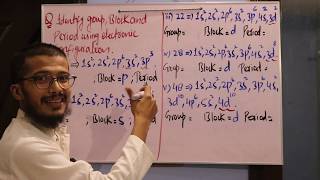 Q Identify group, Block and
Period using electronic
configuration.
1s², 2s², 2p⁶, 3s², 3p³
, Block = p, Period
1s², 2s², 2p⁶, 3s²
, Block = s,
22 ⇒ 1s², 2s², 2p⁶, 3s², 3p⁶, 4s², 3d²
Group= Block = d Period =
28 ⇒ 1s², 2s², 2p⁶, 3s², 3p⁶, 4s², 3d⁸
Group= Block = d Period =
v) 48 ⇒ 1s², 2s², 2p⁶, 3s², 3p⁶, 4s²,
3d¹⁰, 4p⁶, 5s², 4d¹⁰
Group= Block = d Period=